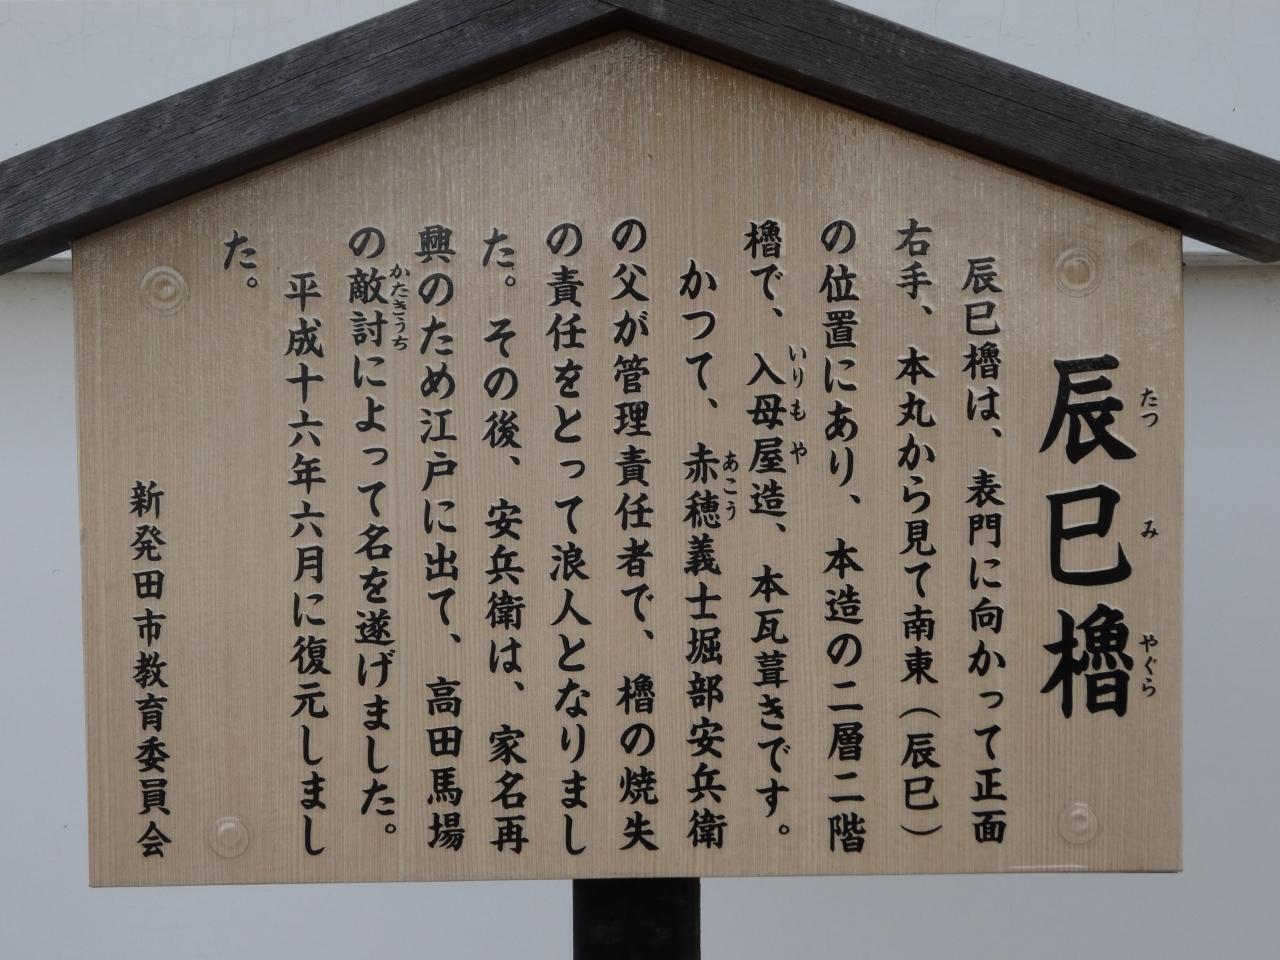 辰巳櫓
たつみやぐら
辰巳櫓は、表門に向かって正面
右手、本丸から見て南東（辰巳）
の位置にあり、本造の二層二階
櫓で、入母屋造、本瓦葺きです。
いりもや
かつて、赤穂義士堀部安兵衛
あこう
の父が管理責任者で、櫓の焼失
の責任をとって浪人となりまし
た。その後、安兵衛は、家名再
興のため江戸に出て、高田馬場
の敵討によって名を遂げました。
かたきうち
平成十六年六月に復元しまし
た。
新発田市教育委員会